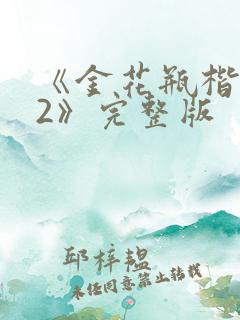 《金花瓶楷
2》完整版
邱梓韫
未经同意禁止转载